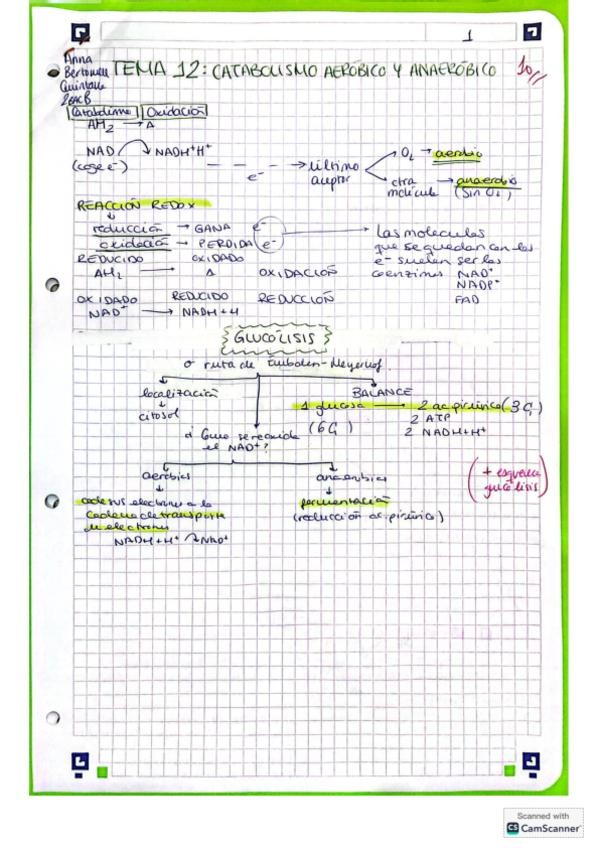 1
Anna
Quintana
2BACB
TEMA 12: CATABOLISMO AERÓBICO Y ANAERÓBICO
10//
Catabolismo Oxidación
AH2 → A
NAD NADH+H+
(coge e-)
e-
último
aceptor
O2 → aerobio
otra
molécula → anaerobio
(Sin O2)
REACCIÓN REDOX
reducción → GANA e-
oxidación → PERDIDA e-
Las moleculas
que se quedan con los
e- suelen ser las
coenzimas NAD+
NADP+
FAD
REDUCIDO OXIDADO
AH2 → A OXIDACIÓN
OXIDADO REDUCIDO REDUCCIÓN
NAD+ → NADH+H
GLUCÓLISIS
o ruta de Embden-Meyerhof.
localización
citosol
¿Como se recicla
el NAD+?
BALANCE
1 glucosa → 2 ac. pirúvico (3C)
(6C)
2 ATP
2 NADH+H+
aerobios
cede sus electrones a la
Cadena de transporte
de electrones
NADH+H+ NAD+
anaerobios
fermentación
(reducción ac. pirúvico)
(+ esquema
glucólisis)
Scanned with
CS CamScanner